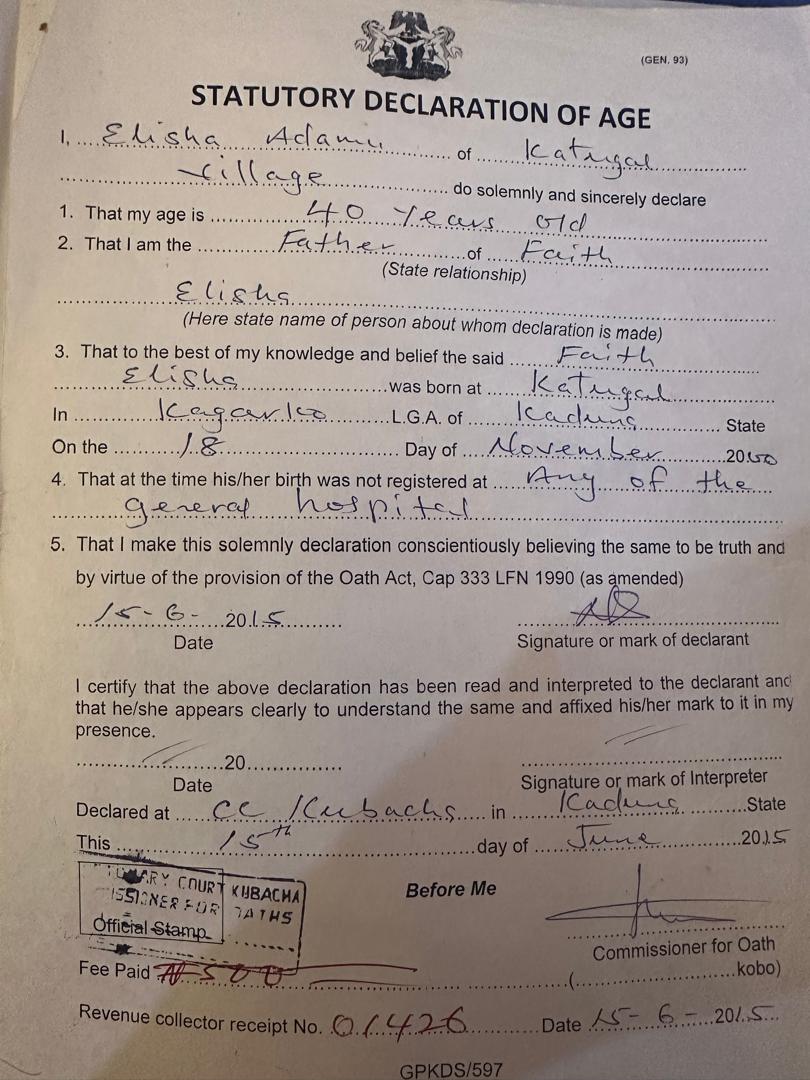 (GEN. 93)
STATUTORY DECLARATION OF AGE
I, .... Elisha Adamu .... of .... Katugal ....
.... Village .... do solemnly and sincerely declare
1. That my age is .... 40 Years old
2. That I am the .... Father .... of .... Faith
(State relationship)
.... Elisha ....
(Here state name of person about whom declaration is made)
3. That to the best of my knowledge and belief the said .... Faith
.... Elisha .... was born at .... Katugal
In .... Kagarko .... L.G.A. of .... Kaduna .... State
On the .... 18 .... Day of .... November .... 2000
4. That at the time his/her birth was not registered at .... Any of the
general hospital
5. That I make this solemnly declaration conscientiously believing the same to be truth and
by virtue of the provision of the Oath Act, Cap 333 LFN 1990 (as amended)
15-6-2015
Date Signature or mark of declarant
I certify that the above declaration has been read and interpreted to the declarant and
that he/she appears clearly to understand the same and affixed his/her mark to it in my
presence.
....20....
Date Signature or mark of Interpreter
Declared at .... CC Kubacha .... in .... Kaduna .... State
This .... 15th .... day of .... June .... 2015
COURT KUBACHA
FOR OATHS
Official Stamp
Before Me
Commissioner for Oath
Fee Paid ₦500 ....(....kobo)
Revenue collector receipt No. 01426 .... Date 15-6-2015
GPKDS/597